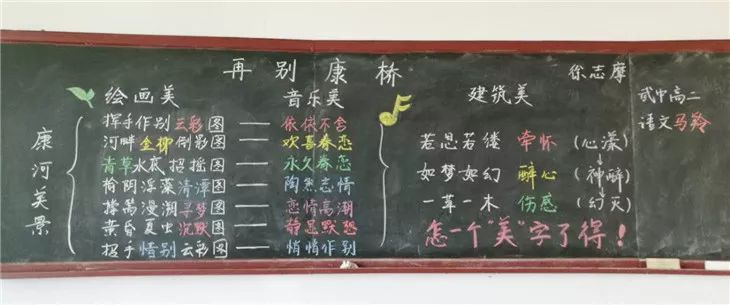 再别康桥 徐志摩
绘画美 音乐美 建筑美
康河美景
挥手作别云彩图——依依不舍
河畔金柳倒影图——欢喜眷恋
青草水底招摇图——永久眷恋
榆阴浮藻清潭图——陶然忘情
撑篙漫溯寻梦图——恋情高潮
黄昏夏虫沉默图——静思默愁
招手惜别云彩图——悄悄作别
若思若缕 牵怀 (心漾)
如梦如幻 醉心 (神醉)
一草一木 伤感 (幻灭)
怎一个"美"字了得!
武中高二
语文马羚